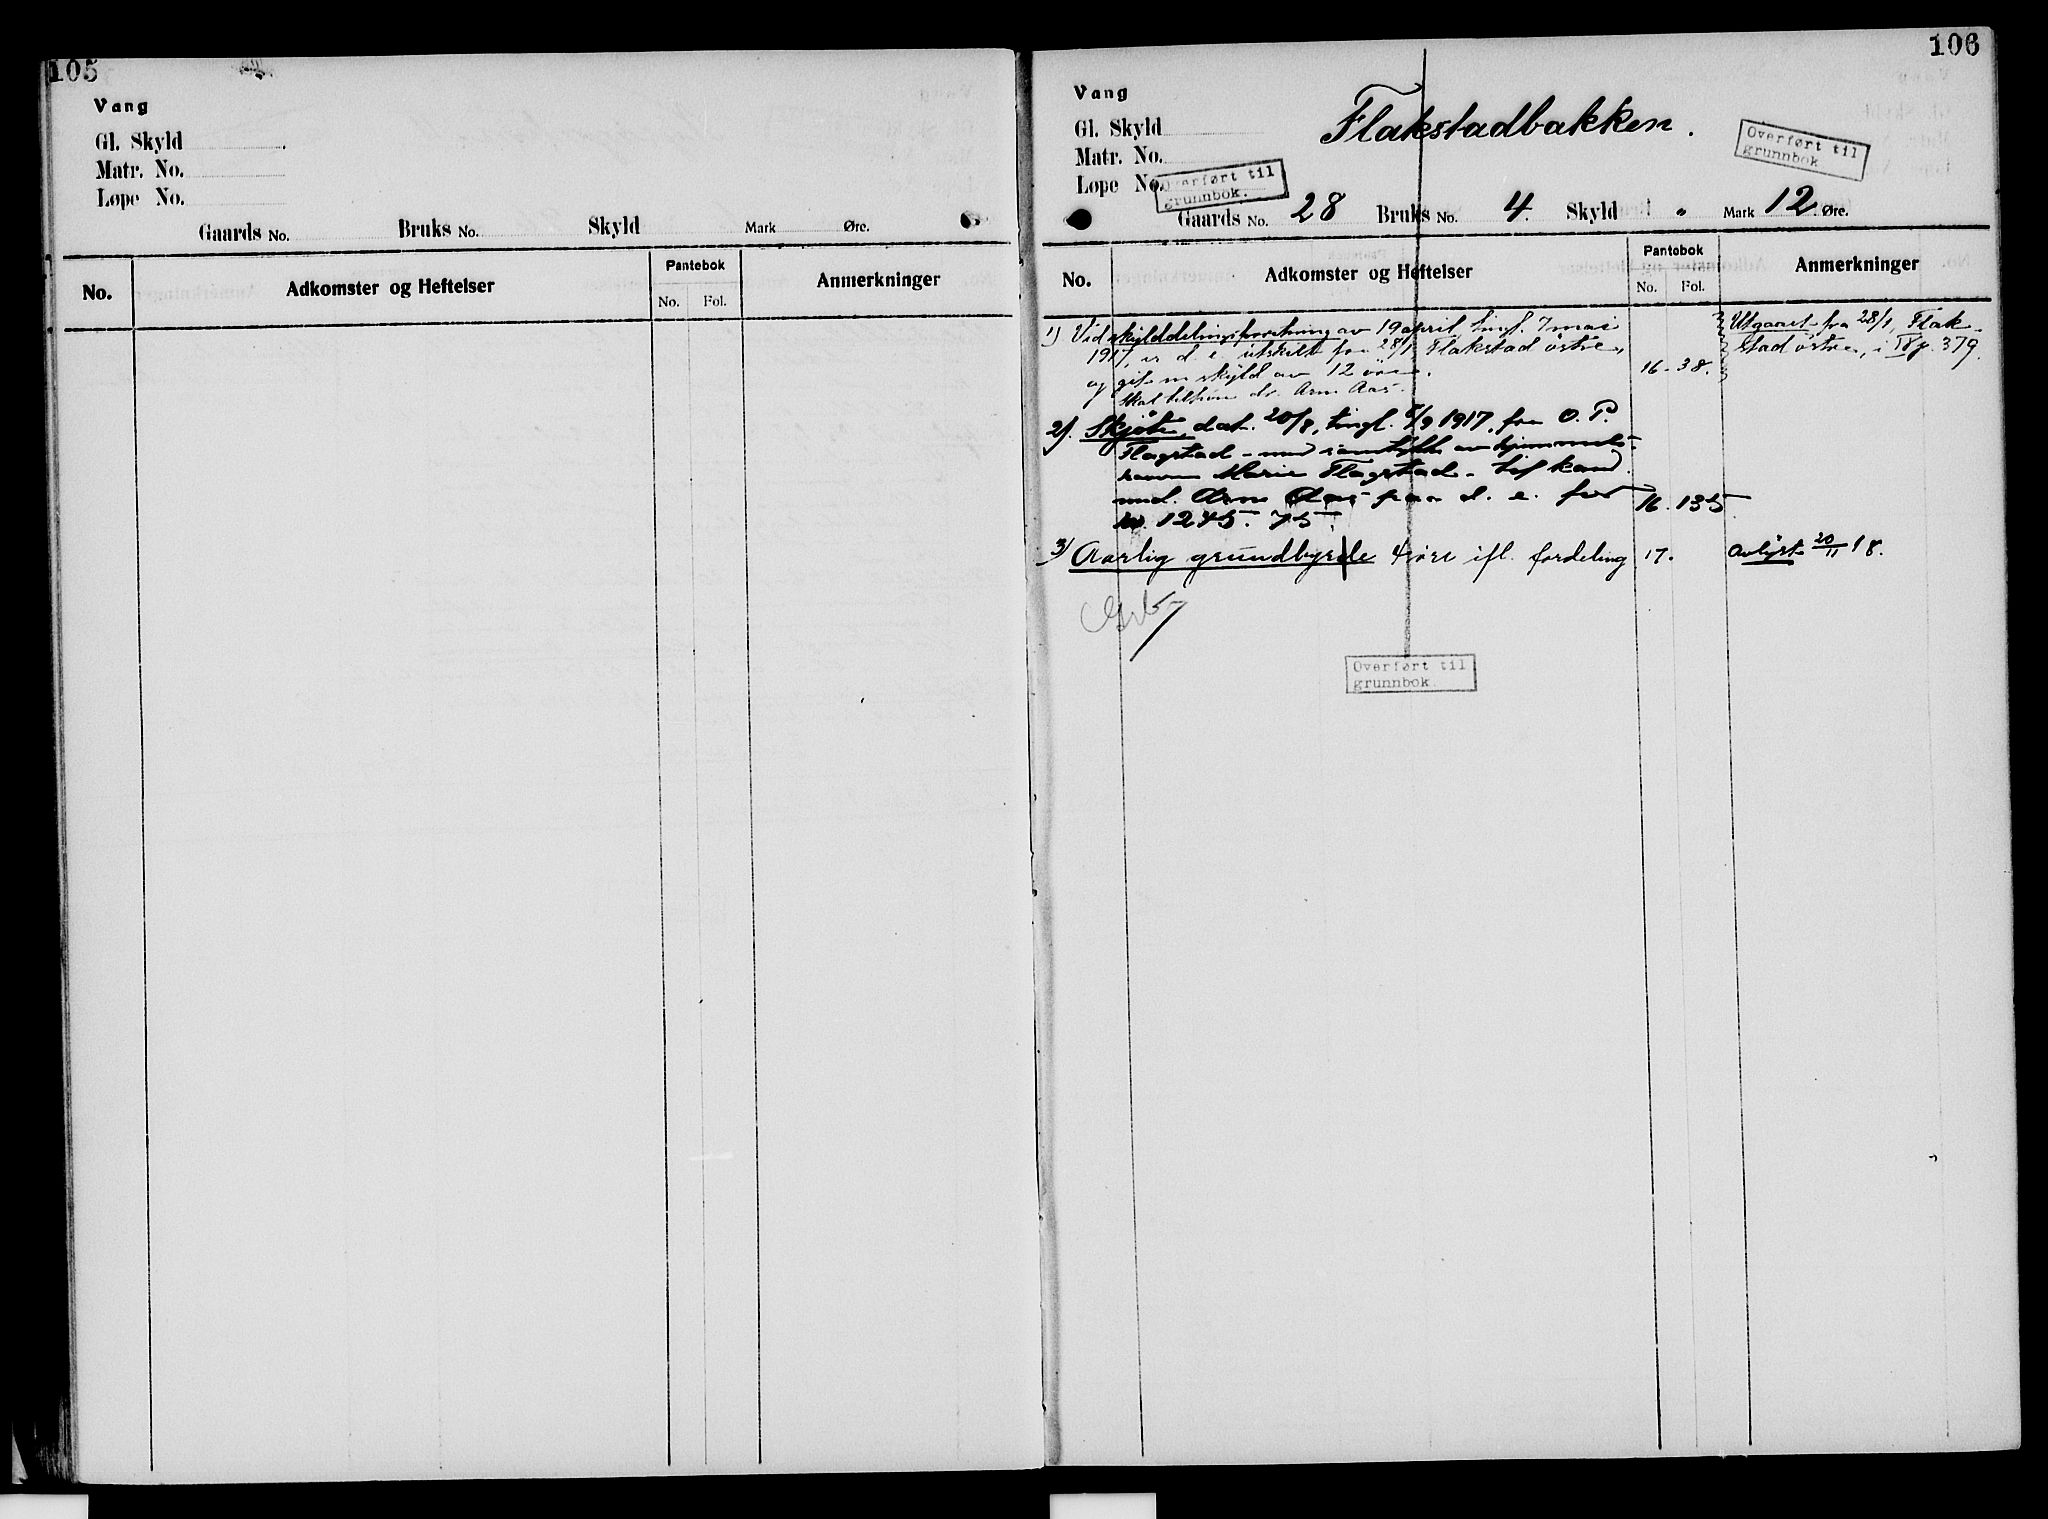 105
Vang
Gl. Skyld
Matr. No.
Løpe No.
Gaards No. Bruks No. Skyld Mark Øre.
No. Adkomster og Heftelser Pantebok Anmerkninger
No. Fol.
106
Vang
Gl. Skyld
Matr. No.
Løpe No.
Flakstadbakken.
Overført til
grunnbok
Overført til
grunnbok.
Gaards No. 28 Bruks No. 4. Skyld " Mark 12 Øre.
No. Adkomster og Heftelser Pantebok Anmerkninger
No. Fol.
1) Vid skylddelingsforretning av 19 april, tingl. 7 mai
1917, er d. e. utskilt fra 28/1 Flakstad östre,
og git en skyld av 12 öre. 16 - 38.
Skal tilhöre dr. Arne Aas.
Utgaaet fra 28/1, Flak-
stad östre, i p. 379.
2). Skjöte, dat. 20/8, tingl. 5/9 1917, fra O. P.
Flagstad - med samtykke av hjemmels-
Marie Flagstad - til kand.
med. Arne Aas paa d. e. for 16. 135
kr. 1245.75.
3) Aarlig grundbyrde öre ifl. fordeling 17. Avlyst 20/11 18.
Overført til
grunnbok.